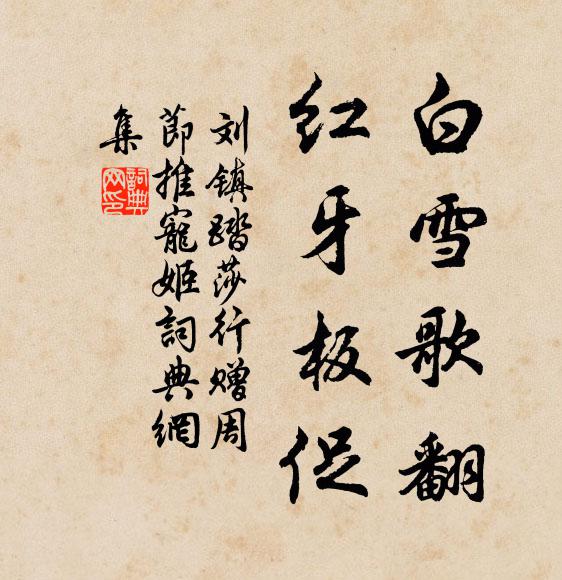 白雪歌翻
红牙板促
刘镇踏莎行赠周
节推宠姬词典網
集
詞典網印